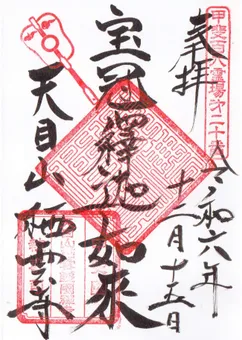 甲斐百八霊場第二十番
奉拝
令和六年
十二月十五日
宝冠釋迦如來
天目山栖雲寺